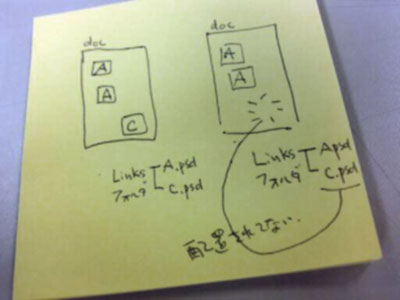 doc
A
A
C
Links
フォルダ
A.psd
C.psd
doc
A
A
Links
フォルダ
A.psd
C.psd
配置されてない.